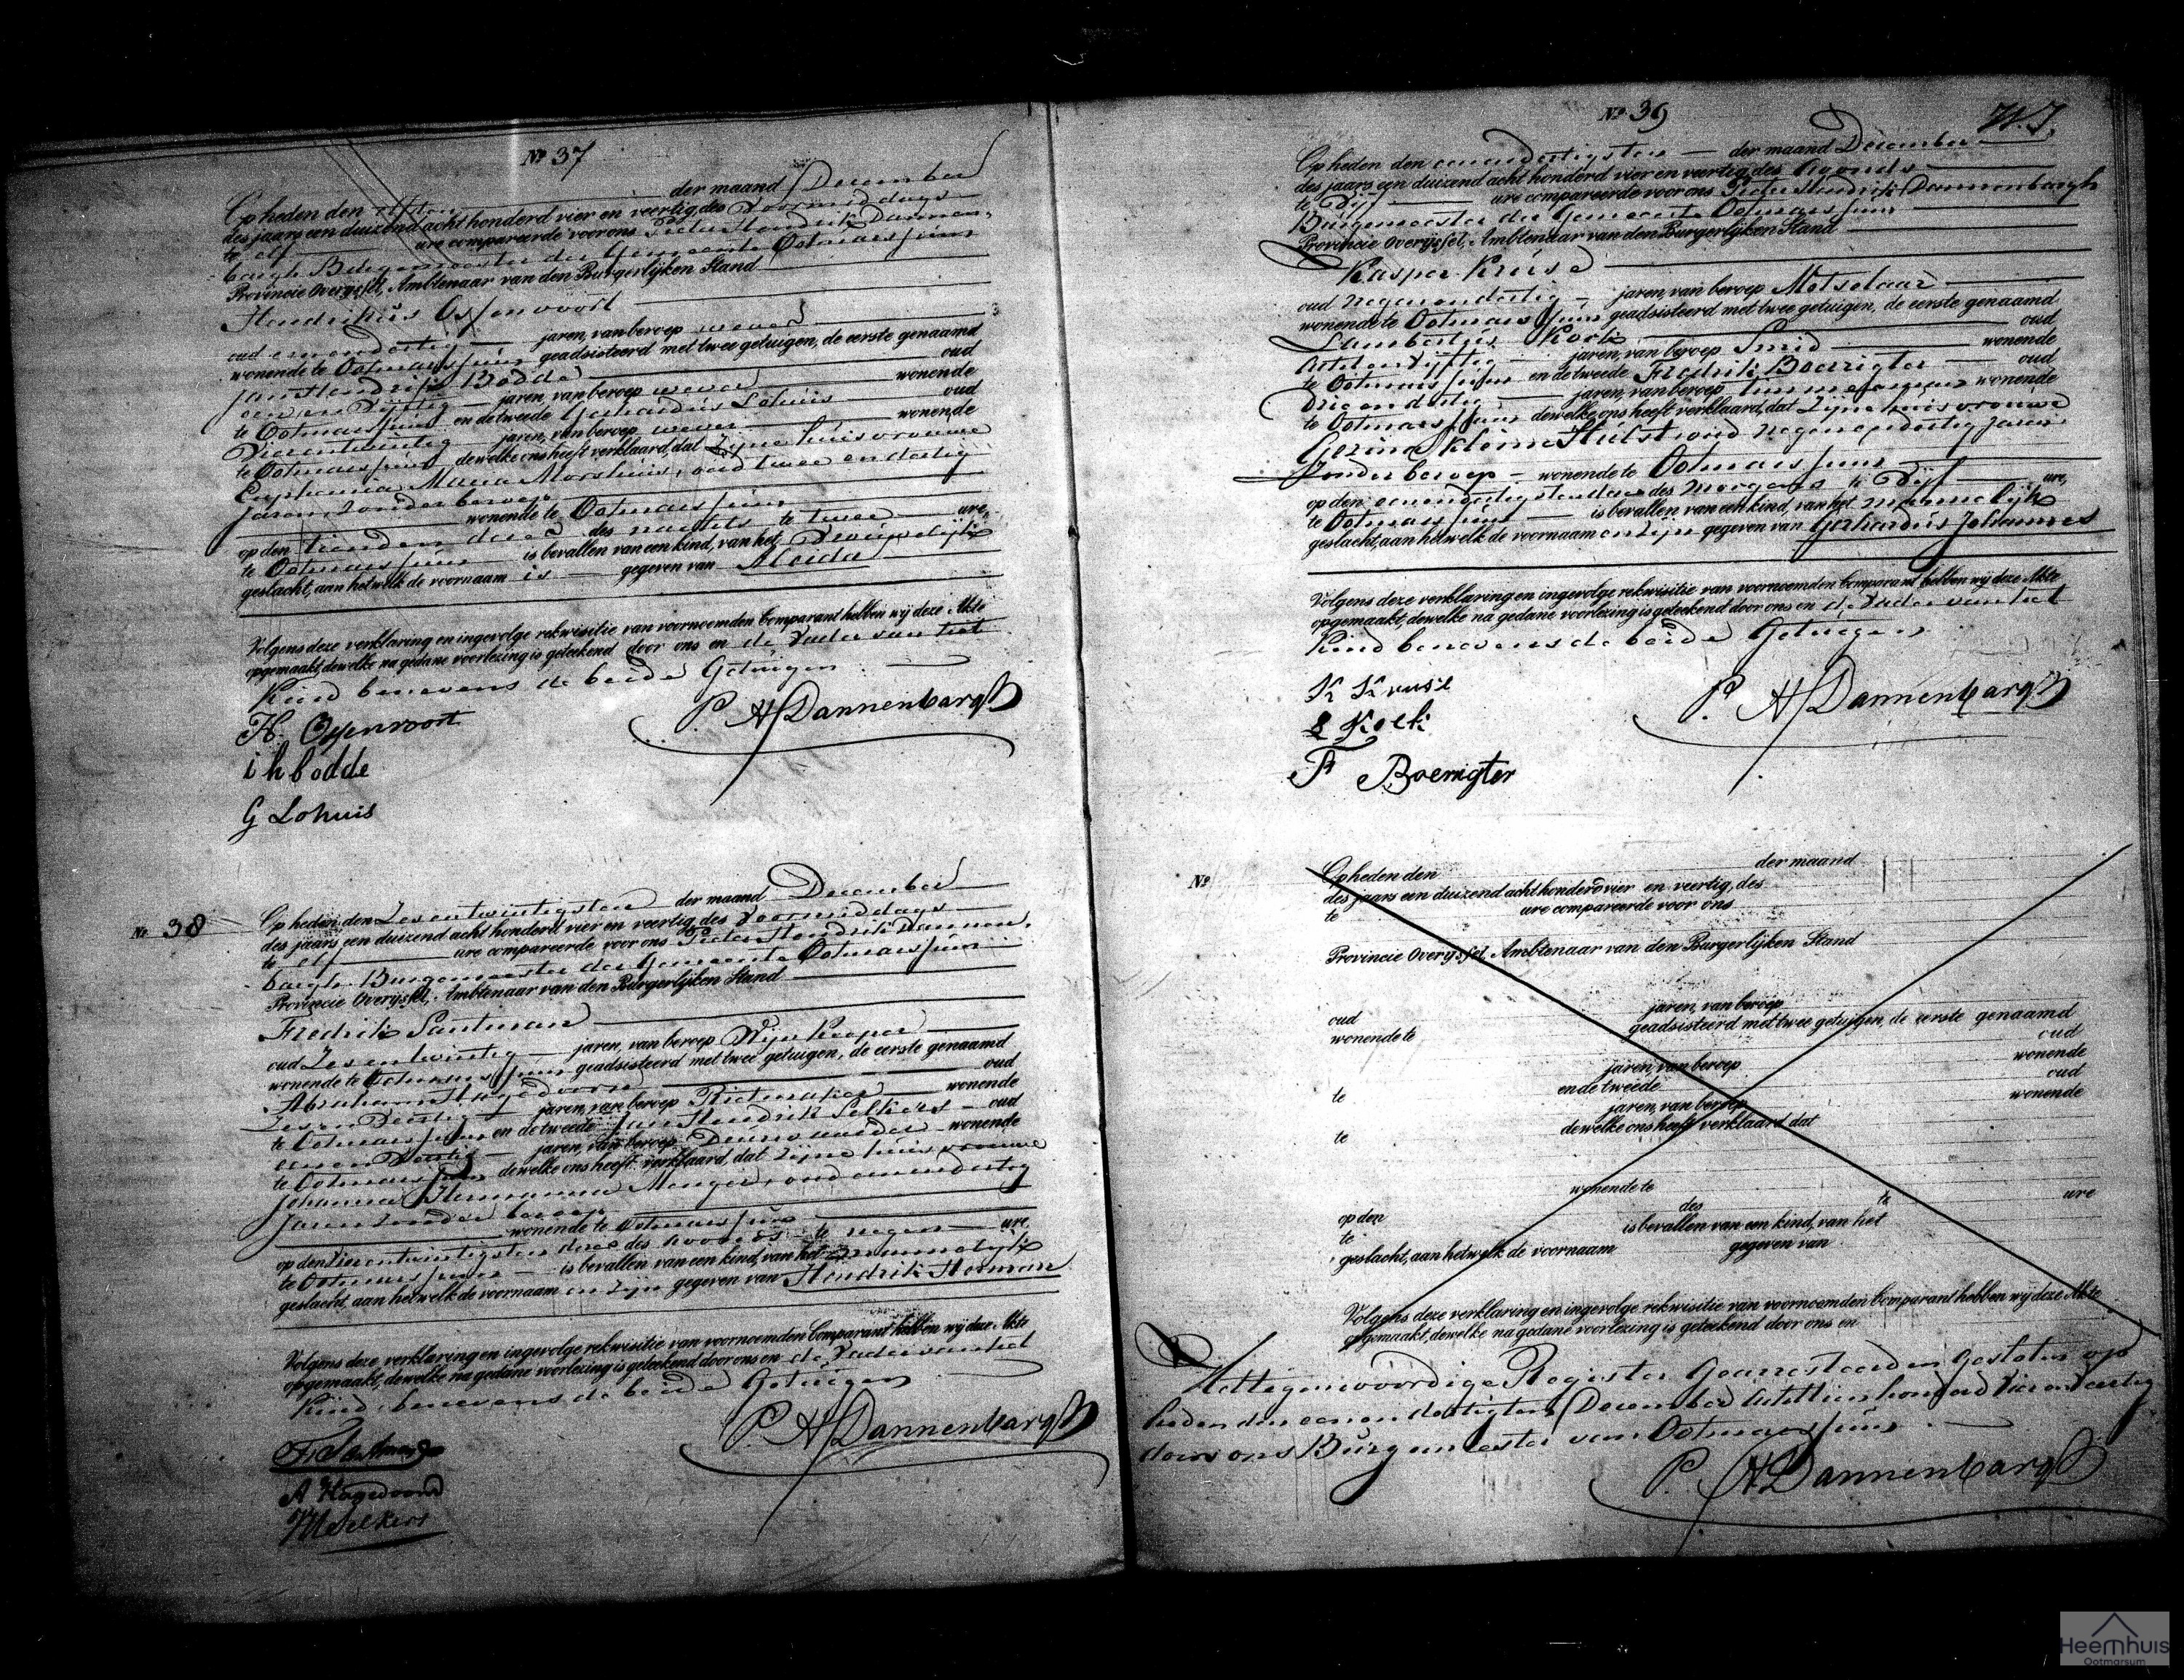 Nº 37
Op heden den elfden der maand December
des jaars een duizend acht honderd vier en veertig, des voormiddags
te elf ure compareerde voor ons Pieter Hendrik Dannen-
bargh Burgemeester der Gemeente Ootmarssum
Provincie Overijssel, Ambtenaar van den Burgerlijken Stand
Hendrikus Ossenvoort
oud eenendertig jaren, van beroep wever
wonende te Ootmarssum geadsisteerd met twee getuigen, de eerste genaamd
Jan Hendrik Bodde oud
een en vijftig jaren, van beroep wever wonende
te Ootmarssum en de tweede Gerhardus Lohuis oud
jaren, van beroep wever wonende
te Ootmarssum dewelke ons heeft verklaard, dat zijne huisvrouwe
Euphemia Maria Morshuis, oud twee en dertig
jaren zonder beroep
wonende te Ootmarssum
op den tienden dezer des nachts te twee ure,
te Ootmarssum is bevallen van een kind, van het vrouwelijk
geslacht, aan hetwelk de voornaam is gegeven van Aleida
Volgens deze verklaring en ingevolge rekwisitie van voornoemden Comparant hebben wij deze Akte
opgemaakt, dewelke na gedane voorlezing is geteekend door ons en de Vader van het
Kind benevens de beide Getuigen
H. Ossenvoort
P. H. Dannenbargh
i h bodde
G Lohuis
Nº 38
Op heden den Zesentwintigsten der maand December
des jaars een duizend acht honderd vier en veertig, des voormiddags
te elf ure compareerde voor ons Pieter Hendrik Dannen-
bargh Burgemeester der Gemeente Ootmarssum
Provincie Overijssel, Ambtenaar van den Burgerlijken Stand
Fredrik Santman
oud Zesentwintig jaren, van beroep Wijnkooper
wonende te Ootmarssum geadsisteerd met twee getuigen, de eerste genaamd
Abraham Hagedoorn oud
jaren, van beroep Rietmaker wonende
te Ootmarssum en de tweede Jan Hendrik Selkers oud
jaren, van beroep wonende
te Ootmarssum dewelke ons heeft verklaard, dat zijne huisvrouwe
Johanna Hermanna Menger, oud eenendertig
jaren zonder beroep
wonende te Ootmarssum
op den vierentwintigsten dezer des avonds te negen ure,
te Ootmarssum is bevallen van een kind, van het mannelijk
geslacht, aan hetwelk de voornaam en zijn gegeven van Hendrik Herman
Volgens deze verklaring en ingevolge rekwisitie van voornoemden Comparant hebben wij deze Akte
opgemaakt, dewelke na gedane voorlezing is geteekend door ons en de Vader van het
Kind benevens de beide Getuigen
P. H. Dannenbargh
A Hagedoorn
Nº 39
Op heden den eenendertigsten der maand December
des jaars een duizend acht honderd vier en veertig, des Avonds
te vijf ure compareerde voor ons Pieter Hendrik Dannenbargh
Burgemeester der Gemeente Ootmarssum
Provincie Overijssel, Ambtenaar van den Burgerlijken Stand
Kasper Kruse
oud negenendertig jaren, van beroep Metselaar
wonende te Ootmarssum geadsisteerd met twee getuigen, de eerste genaamd
Lambertus Kock oud
Achtenvijftig jaren, van beroep Smid wonende
te Ootmarssum en de tweede Fredrik Boerrigter oud
Drie en dertig jaren, van beroep timmerman wonende
te Ootmarssum dewelke ons heeft verklaard, dat zijne huisvrouwe
Gezina Kleine Hulst oud negenendertig jaren
Zonder beroep wonende te Ootmarssum
op den eenendertigsten dezer des morgens te vijf ure,
te Ootmarssum is bevallen van een kind, van het mannelijk
geslacht, aan hetwelk de voornaam en zijn gegeven van Gerhardus Johannes
Volgens deze verklaring en ingevolge rekwisitie van voornoemden Comparant hebben wij deze Akte
opgemaakt, dewelke na gedane voorlezing is geteekend door ons en de Vader van het
Kind benevens de beide Getuigen
K Kruse
P. H. Dannenbargh
F Boerrigter
Nº
Op heden den der maand
des jaars een duizend acht honderd vier en veertig, des
te ure compareerde voor ons
Provincie Overijssel, Ambtenaar van den Burgerlijken Stand
oud jaren, van beroep
wonende te geadsisteerd met twee getuigen, de eerste genaamd
oud
jaren, van beroep wonende
te en de tweede oud
jaren, van beroep wonende
te dewelke ons heeft verklaard dat
wonende te
op den des te ure
te is bevallen van een kind, van het
geslacht, aan hetwelk de voornaam gegeven van
Volgens deze verklaring en ingevolge rekwisitie van voornoemden Comparant hebben wij deze Akte
opgemaakt, dewelke na gedane voorlezing is geteekend door ons en
Het tegenwoordige Register Gearresteerd en gesloten op
heden den eenendertigsten December Achttienhonderd Vier en Veertig
door ons Burgemeester van Ootmarssum
P. H. Dannenbargh
Heemhuis
Ootmarsum